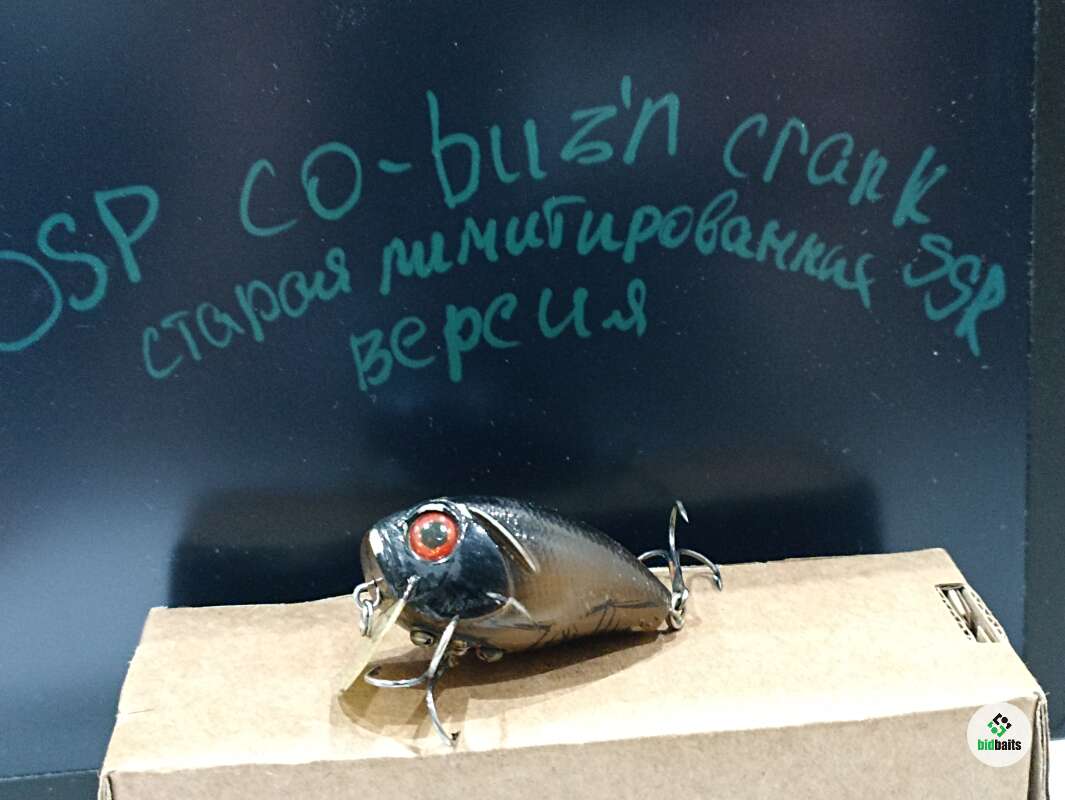 OSP co-buz'n crank SSR
старая лимитированная
версия
bidbaits